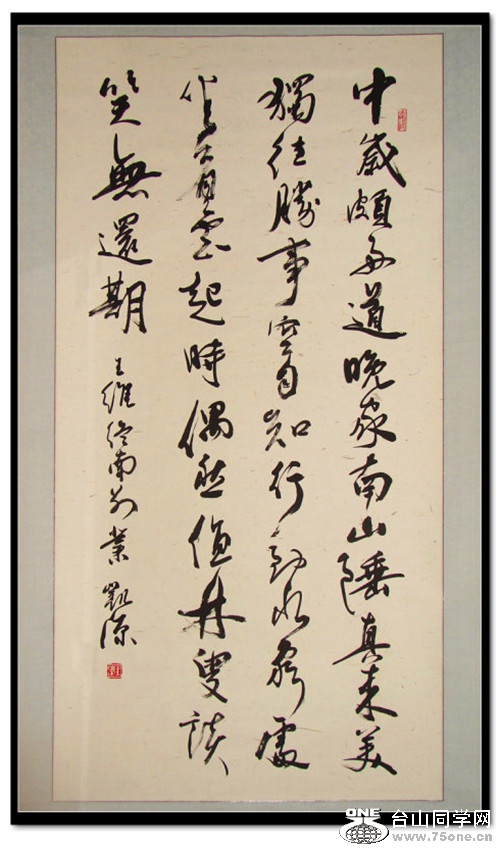 中歲頗好道晚家南山陲興来每
獨往勝事空自知行到水窮處
坐看雲起時偶然值林叟談
笑無還期
王維終南別業 凱源
ONE 台山同学网
www.75one.cn